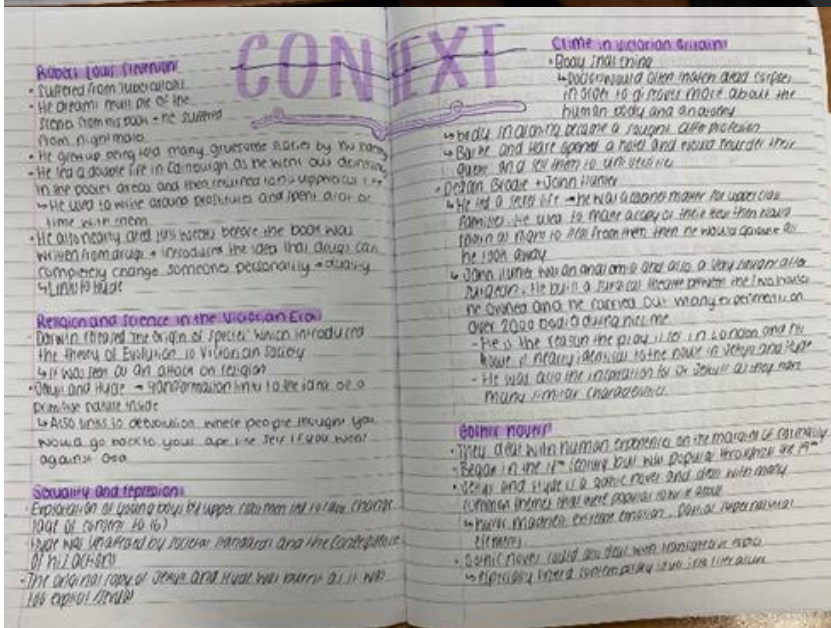 CONTEXT
Robert Louis Stevenson
• Suffered from tuberculosis
• He dreamt much of the
scenes from his book → he suffered
from nightmares
• He grew up being told many gruesome stories by his nanny
• He led a double life in Edinburgh as he went out drinking
in the poorer areas and then returned to his upperclass life
↳ He used to write around prostitutes and spent a lot of
time with them
• He also nearly died just weeks before the book was
written from drugs → introduces the idea that drugs can
completely change someones personality → duality
↳ Links to Hyde
Religion and science in the Victorian Era
• Darwin released 'The Origin of Species' which introduced
the theory of Evolution to Victorian society
↳ It was seen as an attack on religion
• Jekyll and Hyde → transformation links to the idea of a
primitive nature inside
↳ Also links to devolution where people thought you
would go back to your ape like self if you went
against God
Sexuality and repression
• Exploitation of young boys by upper class men led to law change
(age of consent to 16)
• Hyde was unaffected by societal standards and the consequences
of his actions
• The original copy of Jekyll and Hyde was burnt as it was
too explicit
Crime in Victorian Britain
• Body Snatching
↳ Doctors would often snatch dead corpses
in order to discover more about the
human body and anatomy
↳ body snatching became a sought after profession
↳ Burke and Hare opened a hotel and would murder their
guests and sell them to universities
• Deacon Brodie + John Hunter
↳ He led a secret life → he was a cabinet maker for upperclass
families. He used to make a copy of their keys then
at night to steal from them then he would gamble all
he took away
↳ John Hunter was an anatomist and also a very sought after
surgeon. He built a surgical theatre between the two houses
he owned and he carried out many experiments on
over 2000 bodies during his time
- He is the reason the play is set in London and his
house is nearly identical to the house in Jekyll and Hyde
- He was also the inspiration for Dr Jekyll as they have
many similar characteristics
Gothic novels
• They deal with human experiences on the margins of rationality
• Began in the 18th century but was popular throughout the 19th
• Jekyll and Hyde is a gothic novel and deals with many
common themes that were popular
↳ horror, madness, extreme emotion, supernatural
elements
• Gothic novels could also deal with topics
↳ especially contemporary literature